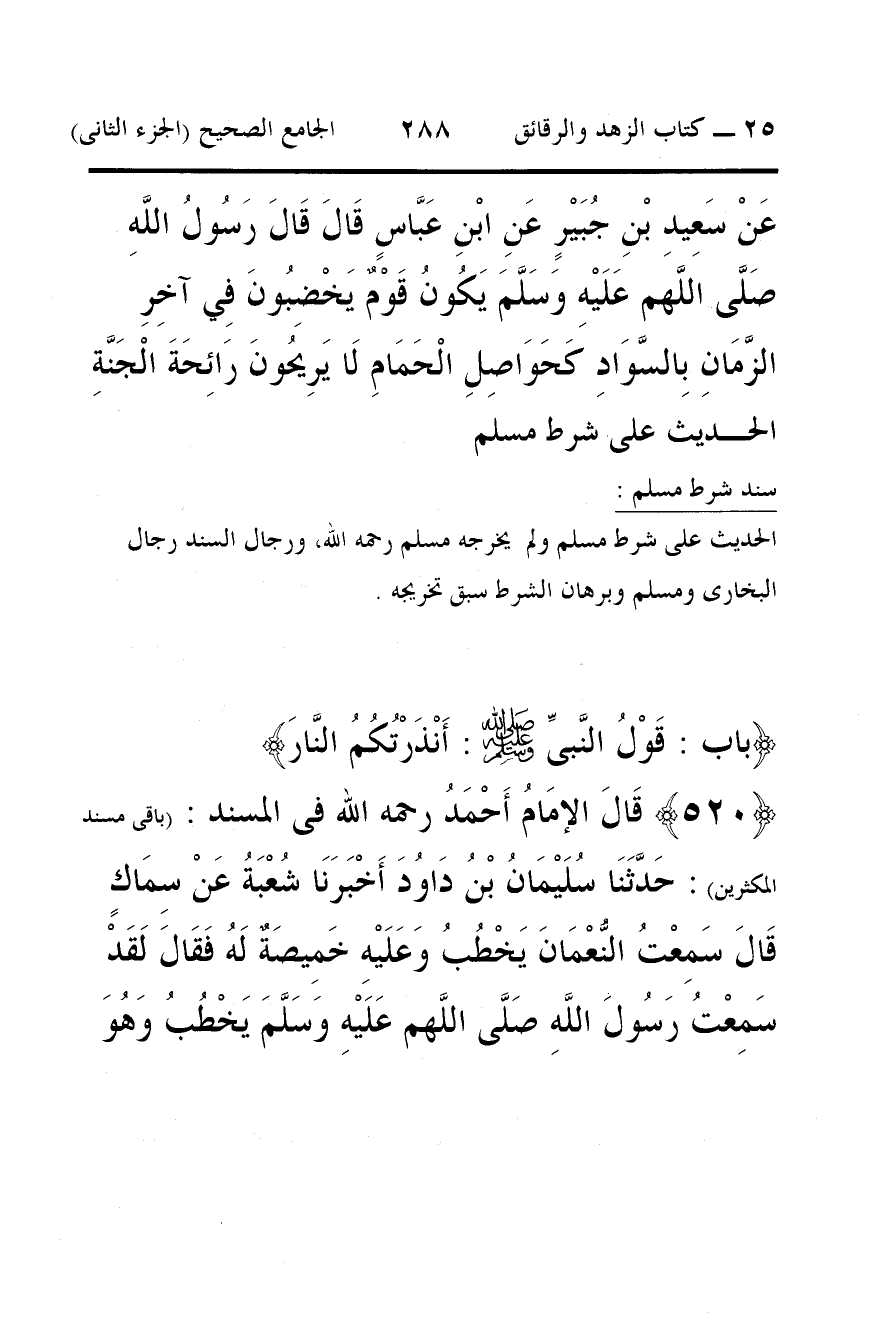 ٢٥ ــ كتاب الزهد والرقائق ٢٨٨ الجامع الصحيح (الجزء الثانى)
عَنْ سَعِيدِ بْنِ جُبَيْرٍ عَنِ ابْنِ عَبَّاسٍ قَالَ قَالَ رَسُولُ اللَّهِ
صَلَّى اللَّهم عَلَيْهِ وَسَلَّمَ يَكُونُ قَوْمٌ يَخْضِبُونَ فِي آخِرِ
الزَّمَانِ بِالسَّوَادِ كَحَوَاصِلِ الْحَمَامِ لَا يَرِيحُونَ رَائِحَةَ الْجَنَّةِ
الحـــديث على شرط مسلم
سند شرط مسلم :
الحديث على شرط مسلم ولم يخرجه مسلم رحمه الله، ورجال السند رجال
البخارى ومسلم وبرهان الشرط سبق تخريجه .
﴿باب : قَوْلُ النَّبىِّ ﷺ : أَنْذَرْتُكُمُ النَّارَ﴾
﴿٥٢٠﴾ قَالَ الإِمَامُ أَحْمَدُ رحمه الله فى المسند : (باقى مسند
المكثرين) : حَدَّثَنَا سُلَيْمَانُ بْنُ دَاوُدَ أَخْبَرَنَا شُعْبَةُ عَنْ سِمَاكٍ
قَالَ سَمِعْتُ النُّعْمَانَ يَخْطُبُ وَعَلَيْهِ خَمِيصَةٌ لَهُ فَقَالَ لَقَدْ
سَمِعْتُ رَسُولَ اللَّهِ صَلَّى اللَّهم عَلَيْهِ وَسَلَّمَ يَخْطُبُ وَهُوَ